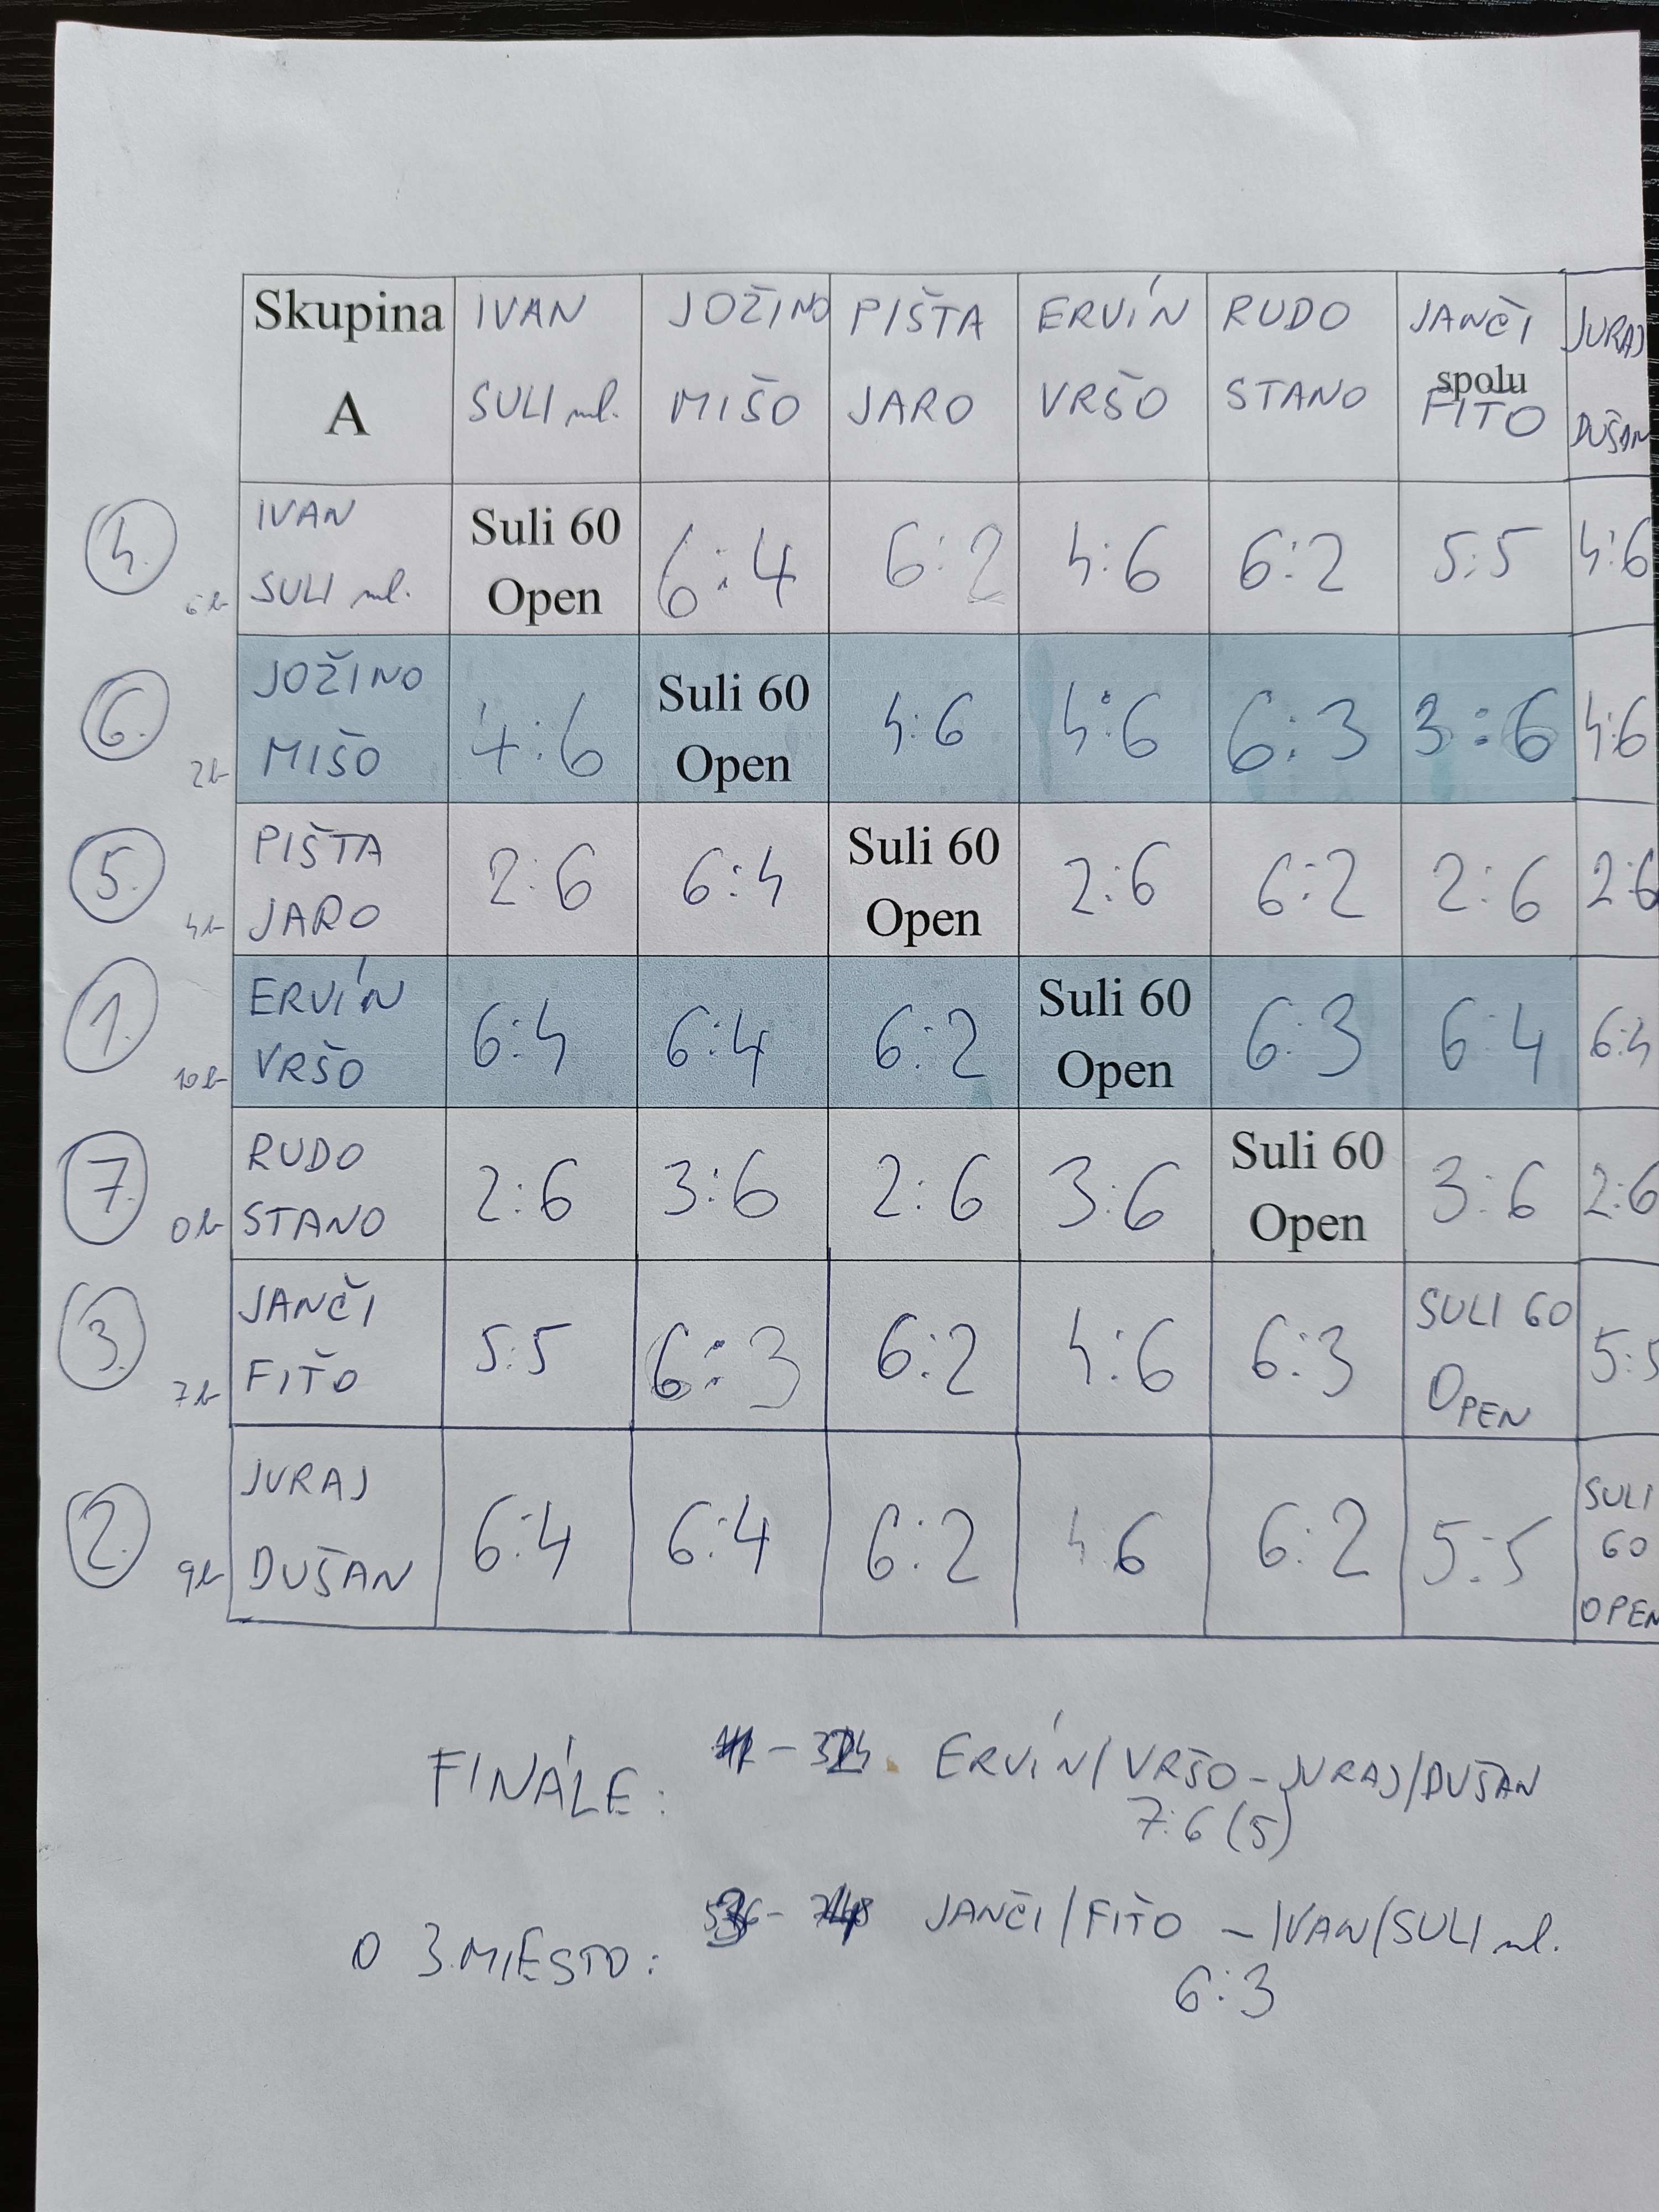 Skupina A
IVAN SULI ml.
JOŽINO MIŠO
PIŠTA JARO
ERVÍN VRŠO
RUDO STANO
JANČI spolu FITO
JURAJ DUŠAN
4. 6b IVAN SULI ml. Suli 60 Open 6:4 6:2 4:6 6:2 5:5 4:6
6. 2b JOŽINO MIŠO 4:6 Suli 60 Open 4:6 4:6 6:3 3:6 4:6
5. 4b PIŠTA JARO 2:6 6:4 Suli 60 Open 2:6 6:2 2:6 2:6
1. 10b ERVÍN VRŠO 6:4 6:4 6:2 Suli 60 Open 6:3 6:4 6:4
7. 0b RUDO STANO 2:6 3:6 2:6 3:6 Suli 60 Open 3:6 2:6
3. 7b JANČI FIŤO 5:5 6:3 6:2 4:6 6:3 SULI 60 OPEN 5:5
2. 9b JURAJ DUŠAN 6:4 6:4 6:2 4:6 6:2 5:5 SULI 60 OPEN
FINÁLE: ERVÍN/VRŠO - JURAJ/DUŠAN
7:6 (5)
O 3. MIESTO: JANČI/FIŤO - IVAN/SULI ml.
6:3